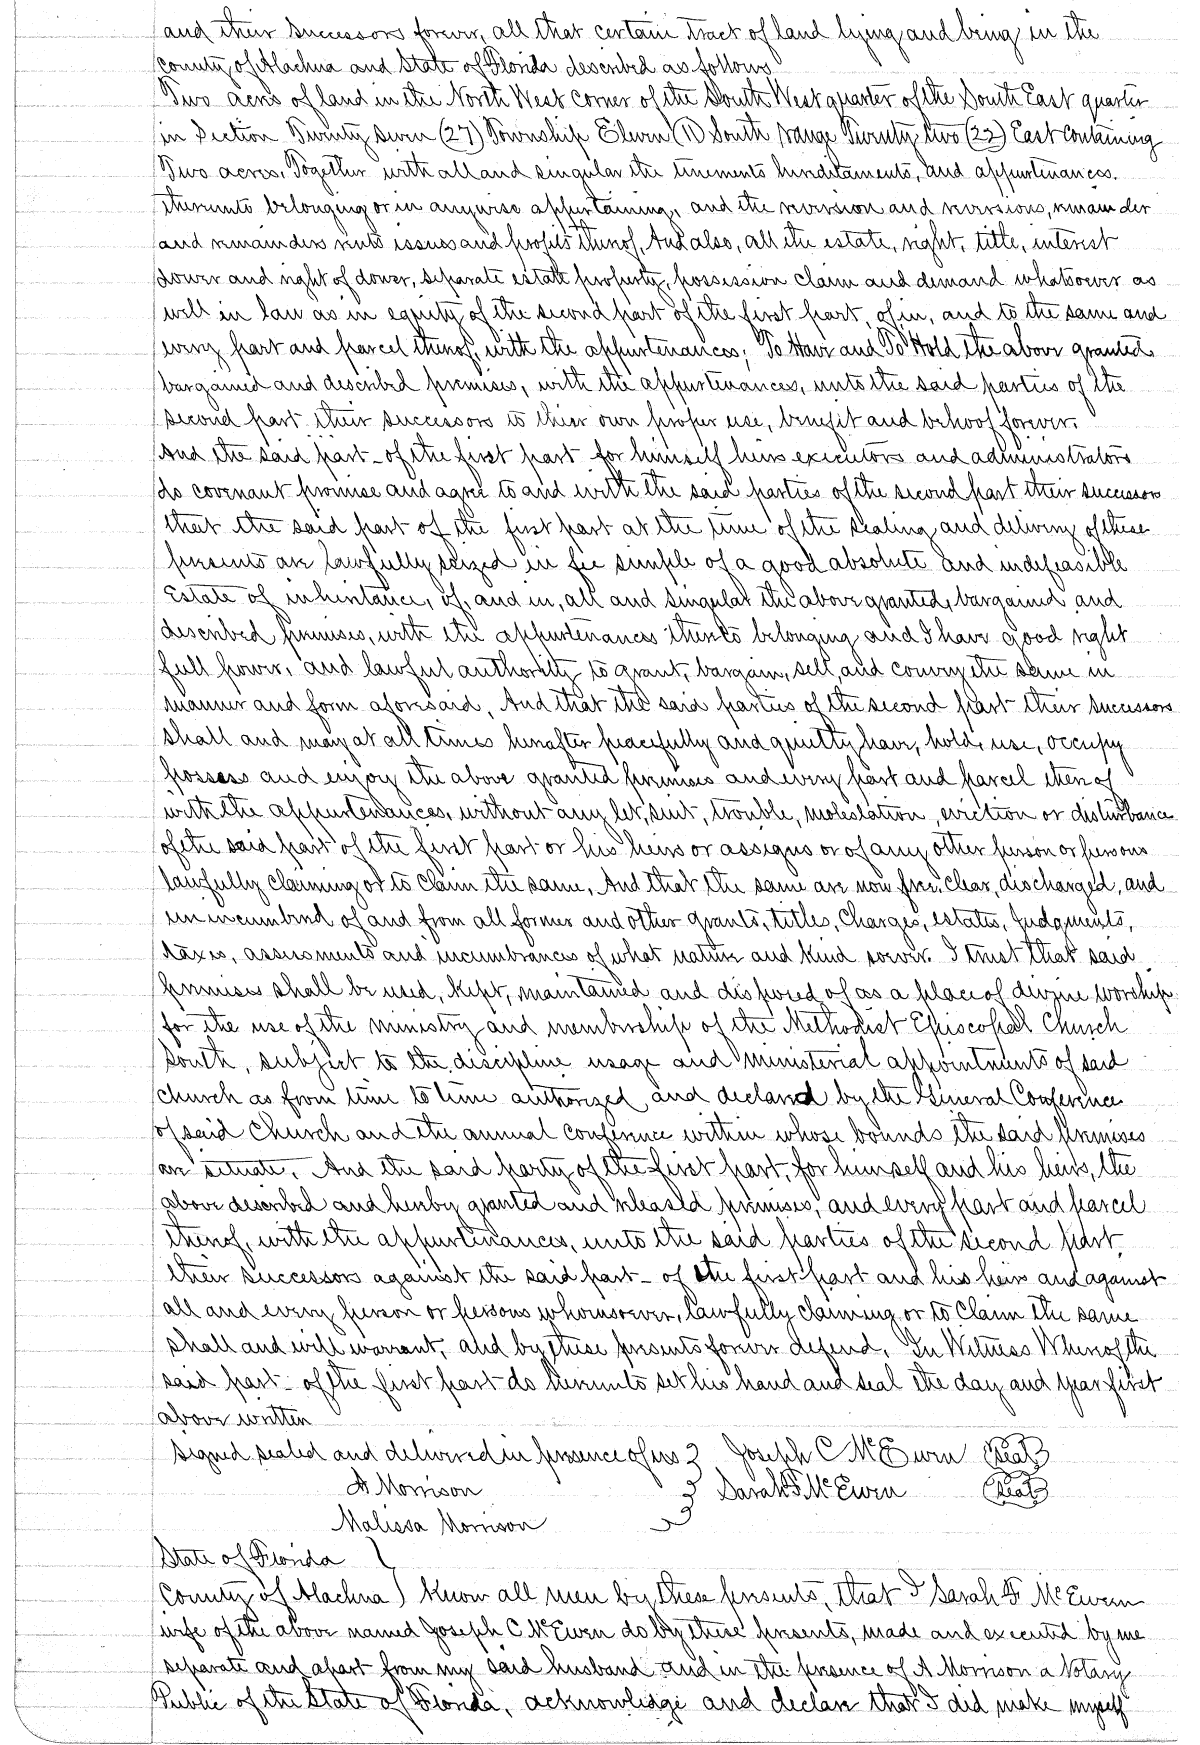 and their successors forever, all that certain tract of land lying and being in the
County of Alachua and State of Florida described as follows
Two acres of land in the North West corner of the South West quarter of the South East quarter
in Section Twenty seven (27) Township Eleven (11) South range Twenty two (22) East containing
Two acres. Together with all and singular the tenements hereditaments, and appurtenances.
thereunto belonging or in anywise appertaining, and the reversion and reversions, remainder
and remainders rents issues and profits thereof, And also, all the estate, right, title, interest
dower and right of dower, separate estate property, possession claim and demand whatsoever as
well in law as in equity of the second part of the first part, of in, and to the same and
every part and parcel thereof, with the appurtenances; To Have and To Hold the above granted
bargained and described premises, with the appurtenances, unto the said parties of the
second part their successors to their own proper use, benefit and behoof forever.
And the said part_ of the first part for himself heirs executors and administrators
do covenant promise and agree to and with the said parties of the second part their successors
that the said part of the first part at the time of the sealing and delivery of these
presents are lawfully seized in fee simple of a good absolute and indefeasible
Estate of inheritance, of, and in, all and singular the above granted, bargained and
described premises, with the appurtenances thereto belonging and I have good right
full power, and lawful authority to grant, bargain, sell, and convey the same in
manner and form aforesaid, And that the said parties of the second part their successors
shall and may at all times hereafter peacefully and quietly have, hold, use, occupy
possess and enjoy the above granted premises and every part and parcel thereof
with the appurtenances, without any let, suit, trouble, molestation, eviction or disturbance
of the said part of the first part or his heirs or assigns or of any other person or persons
lawfully claiming or to claim the same, And that the same are now free, clear, discharged, and
unincumbered of and from all former and other grants, titles, Charges, estates, judgments,
taxes, assessments and incumbrances of what nature and kind soever. I trust that said
premises shall be used, kept, maintained and disposed of as a place of divine worship
for the use of the ministry and membership of the Methodist Episcopal Church
South, subject to the discipline usage and ministerial appointments of said
church as from time to time authorized and declared by the General Conference
of said Church and the annual conference within whose bounds the said Premises
are situate, And the said party of the first part, for himself and his heirs, the
above described and hereby granted and released premises, and every part and parcel
thereof, with the appurtenances, unto the said parties of the second part,
their successors against the said part_ of the first part and his heirs and against
all and every person or persons whomsoever, lawfully claiming or to Claim the same
shall and will warrant, and by these presents forever defend. In Witness Whereof the
said part_ of the first part do hereunto set his hand and seal the day and year first
above written
Signed sealed and delivered in presence of us } Joseph C McEwen (Seal)
A Morrison } Sarah F McEwen (Seal)
Malissa Morrison
State of Florida }
County of Alachua } Know all men by these presents, that I Sarah F McEwen
wife of the above named Joseph C McEwen do by these presents, made and executed by me
separate and apart from my said husband and in the presence of A Morrison a Notary
Public of the State of Florida, acknowledge and declare that I did make myself